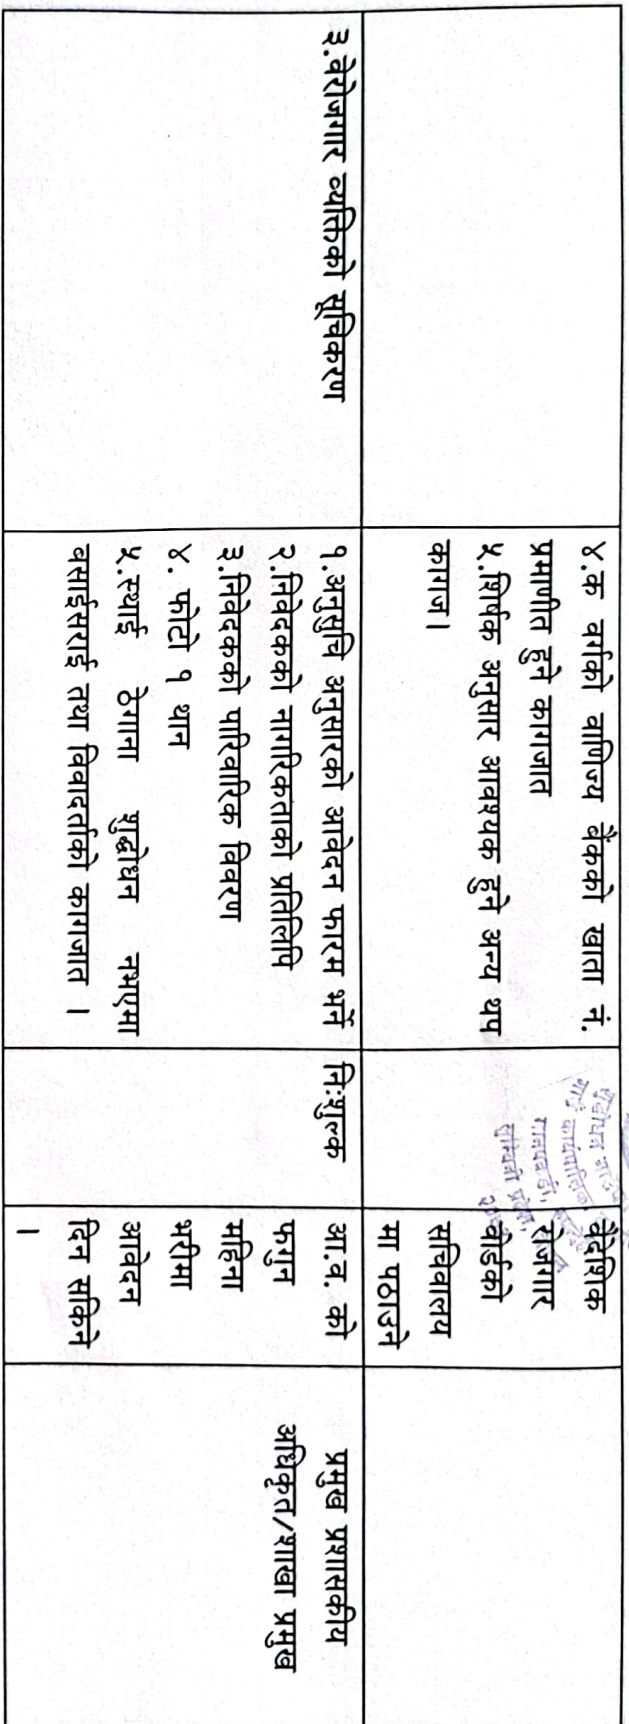 ४.क वर्गको वाणिज्य बैंकको खाता नं.
प्रमाणीत हुने कागजात
५.शिर्षक अनुसार आवश्यक हुने अन्य थप
कागज।
वैदेशिक
रोजगार
बोर्डको
सचिवालय
मा पठाउने
३.बेरोजगार व्यक्तिको सूचिकरण
१.अनुसुचि अनुसारको आवेदन फारम भर्ने
२.निवेदकको नागरिकताको प्रतिलिपि
३.निवेदकको परिवारिक विवरण
४. फोटो १ थान
५.स्थाई ठेगाना शुद्धोधन नभएमा
बसाईसराई तथा विवादर्ताको कागजात ।
नि:शुल्क
आ.व. को
फागुन
महिना
भरीमा
आवेदन
दिन सकिने
।
प्रमुख प्रशासकीय
अधिकृत/शाखा प्रमुख